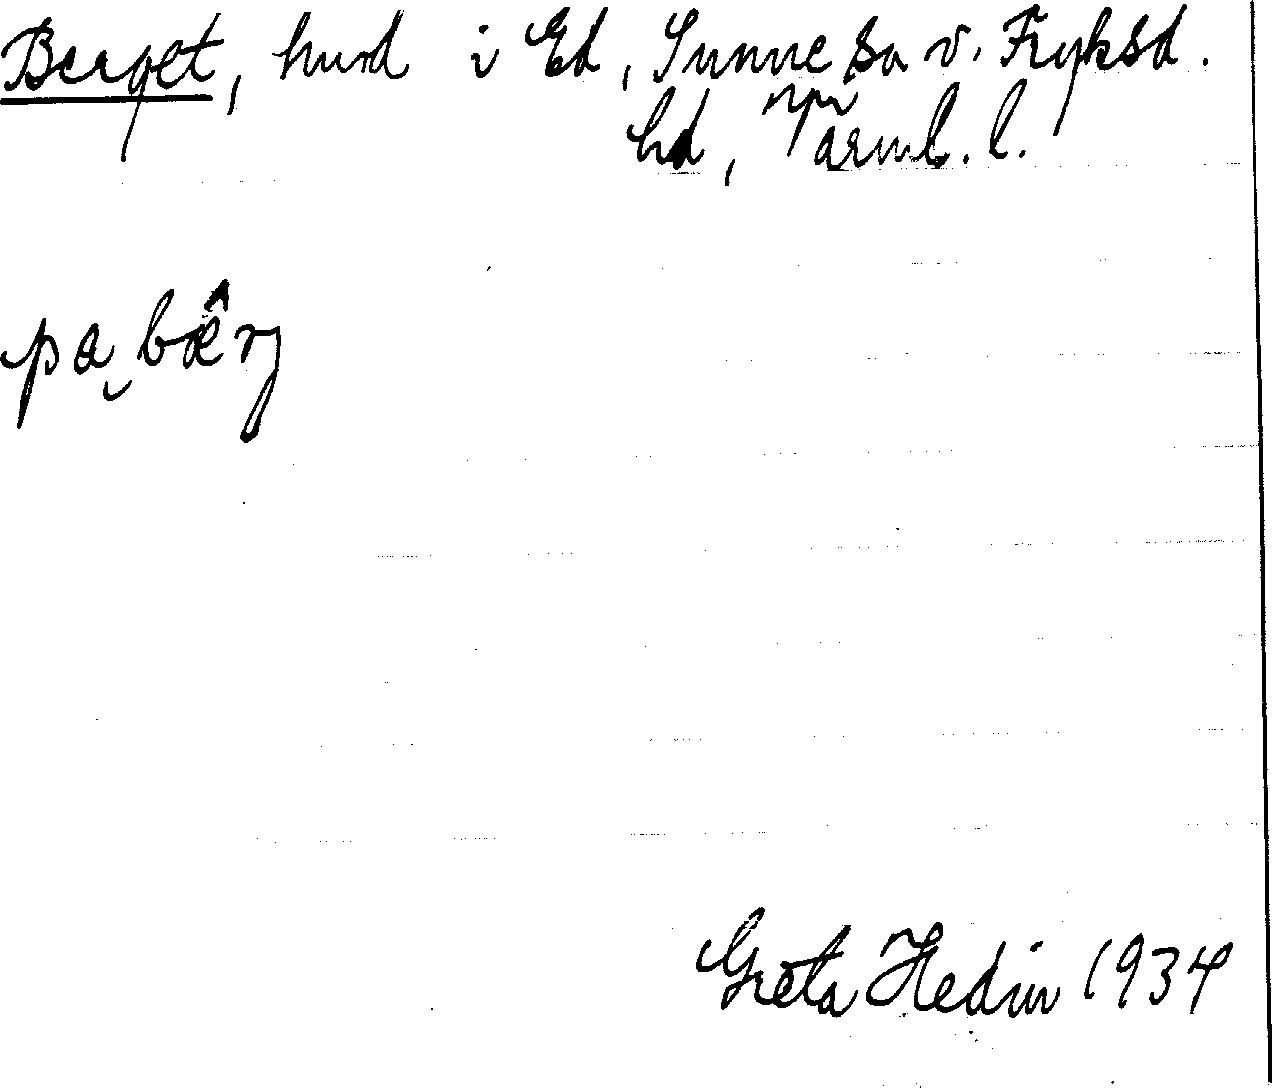 Berget, hmd i Ed, Sunne sn v. Fryksd.
hd, Värml. l.
pa bæ̂rj
Greta Hedin 1934